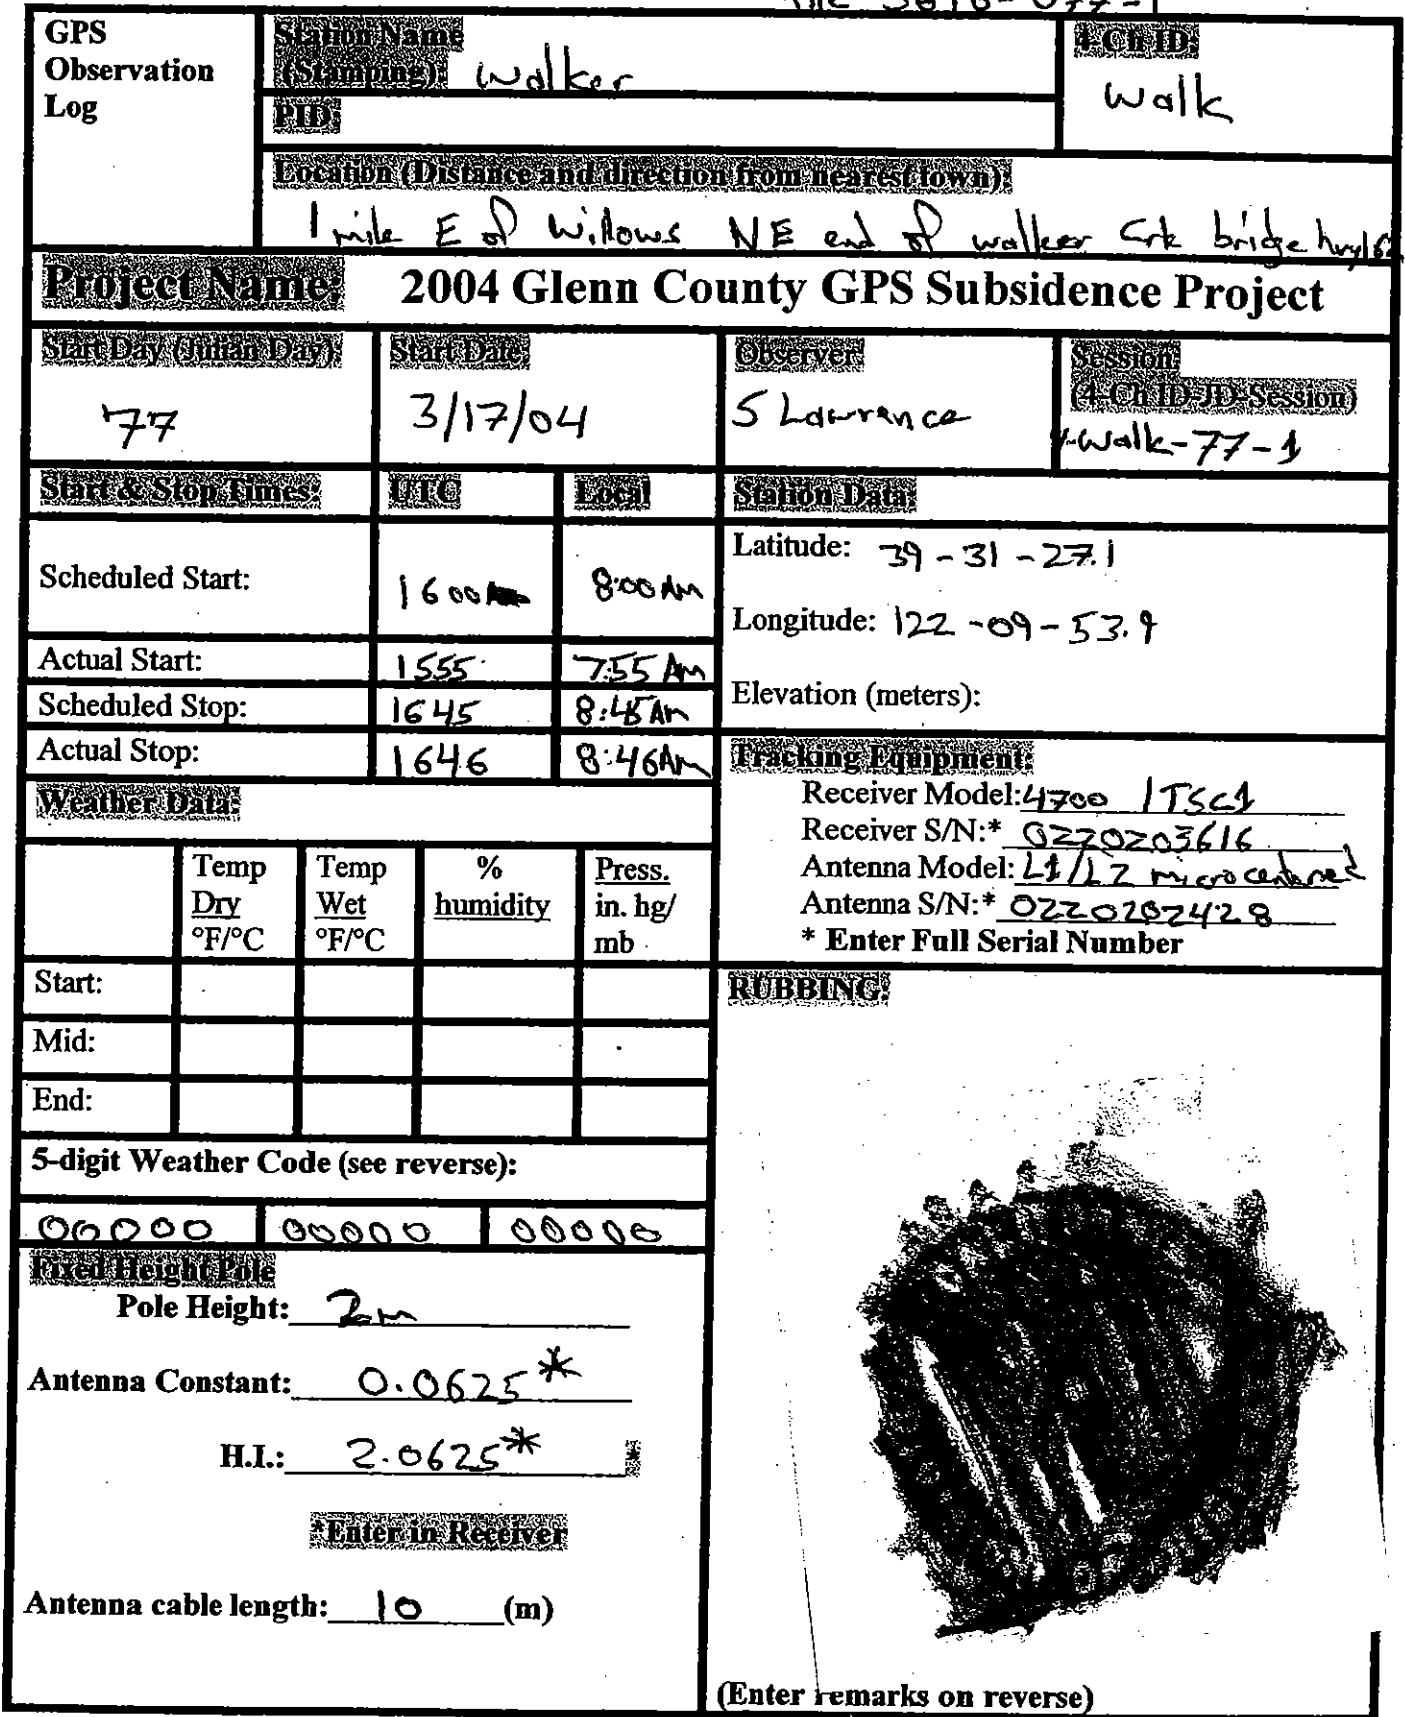 file 3616-077-1
GPS Observation Log
Station Name (Stamping): Walker
4-Ch ID: Walk
PID:
Location (Distance and direction from nearest town):
1 mile E of Willows NE end of walker Crk bridge hwy162
Project Name: 2004 Glenn County GPS Subsidence Project
Start Day (Julian Day): 77
Start Date: 3/17/04
Observer: S Lawrance
Session: (4-Ch ID-JD-Session)
Walk-77-1
Start & Stop Times: UTC Local
Station Data:
Scheduled Start: 1600 8:00 Am
Latitude: 39-31-27.1
Longitude: 122-09-53.9
Actual Start: 1555 7:55 Am
Scheduled Stop: 1645 8:45 Am
Elevation (meters):
Actual Stop: 1646 8:46Am
Tracking Equipment:
Receiver Model: 4700 / TSC1
Receiver S/N:* 0220203616
Antenna Model: L1/L2 microcentered
Antenna S/N:* 0220282428
* Enter Full Serial Number
Weather Data:
Temp Dry °F/°C
Temp Wet °F/°C
% humidity
Press. in. hg/ mb
Start:
Mid:
End:
RUBBING:
5-digit Weather Code (see reverse):
00000 00000 00000
Fixed Height Pole
Pole Height: 2m
Antenna Constant: 0.0625*
H.I.: 2.0625* *
*Enter in Receiver
Antenna cable length: 10 (m)
(Enter remarks on reverse)